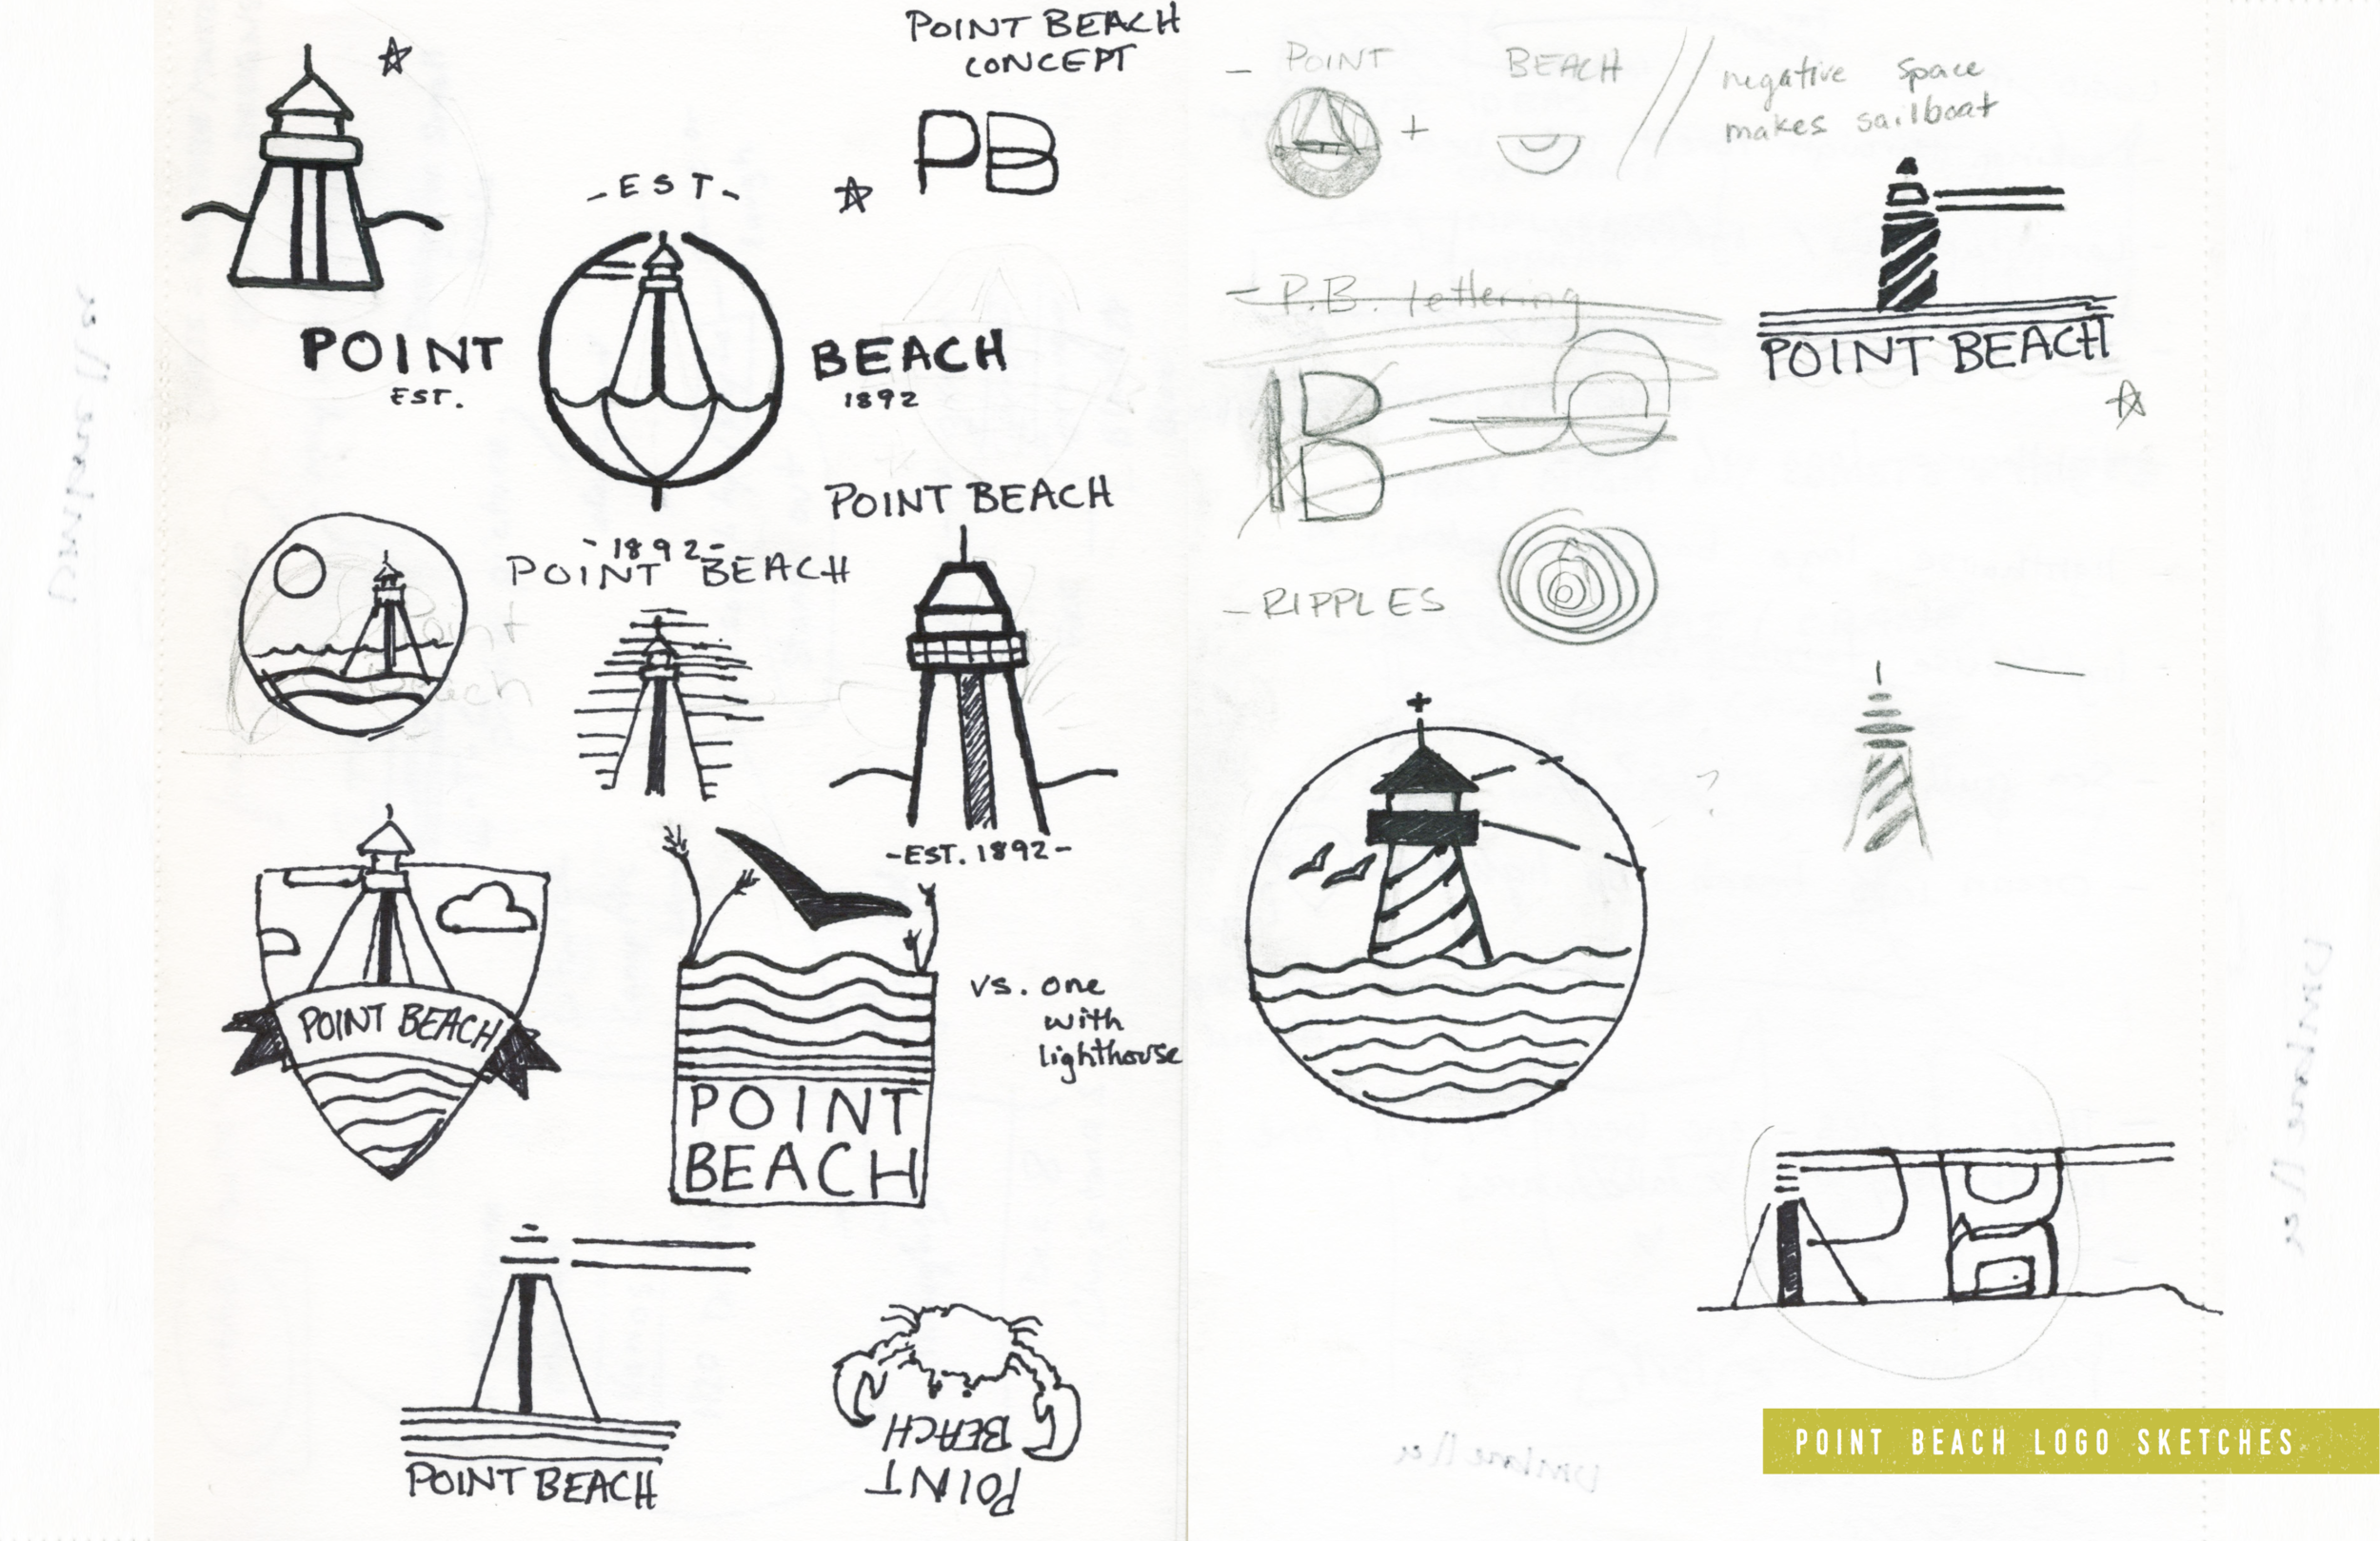 POINT BEACH
CONCEPT
PB
- EST -
POINT
BEACH
EST.
1892
- 1892 -
POINT BEACH
POINT BEACH
-EST. 1892-
Point
Beach
POINT BEACH
POINT
BEACH
vs. one
with
lighthouse
POINT BEACH
POINT
BEACH
- POINT + BEACH // negative space
makes sailboat
POINT BEACH
- P.B. lettering
PB
- RIPPLES
?
PB
POINT BEACH LOGO SKETCHES